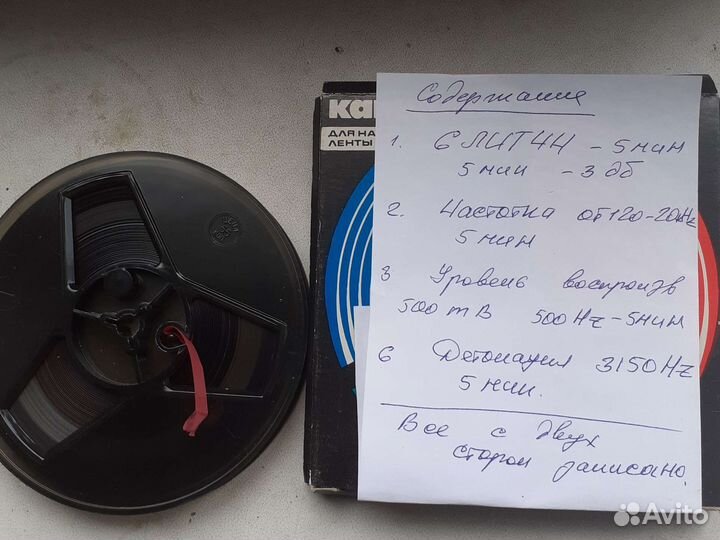 Ка
ДЛЯ НА
ЛЕНТЫ
Содержание
1. 6 ЛИТ4Н - 5 мин
5 мин - 3 дб
2. Частотка от 120-20кHz
5 мин
3 Уровень воспроизв
500 mB 500 Hz - 5 мин
6 Детонация 3150 Hz
5 мин.
Все с двух
сторон записано.
Avito